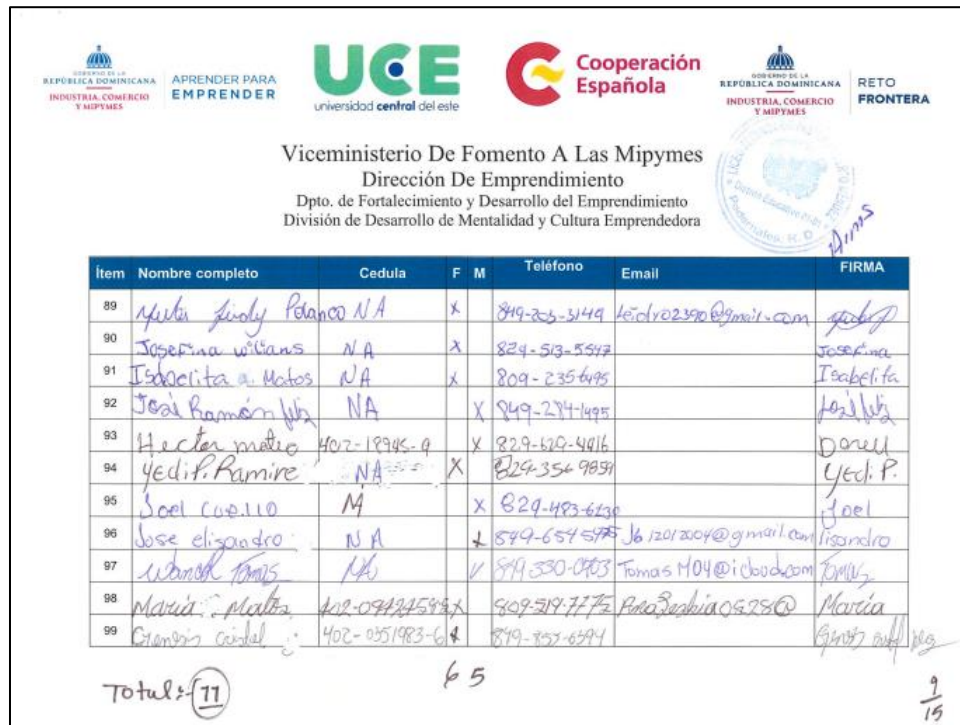 GOBIERNO DE LA
REPÚBLICA DOMINICANA
INDUSTRIA, COMERCIO
Y MIPYMES
APRENDER PARA
EMPRENDER
UCE
universidad central del este
Cooperación
Española
GOBIERNO DE LA
REPÚBLICA DOMINICANA
INDUSTRIA, COMERCIO
Y MIPYMES
RETO
FRONTERA
Viceministerio De Fomento A Las Mipymes
Dirección De Emprendimiento
Dpto. de Fortalecimiento y Desarrollo del Emprendimiento
División de Desarrollo de Mentalidad y Cultura Emprendedora
Pedernales, R. D.
Ítem Nombre completo Cedula F M Teléfono Email FIRMA
89 Polanco NA X 849-205-3149
90 Josefina wilians NA X 829-513-5547 Josefina
91 Isabelita a. Matos NA X 809-2356495 Isabelita
92 José Ramón feliz NA X 849-284-1495 José feliz
93 Hector mateo 402-18945-9 X 829-620-4416
94 Yedi P. Ramire NA X 829-3569859 Yedi. P.
95 Joel X 829-483-6230 Joel
96 Jose elisandro NA X 849-654 Jb12012004@gmail.com lisandro
97 Tomas 849-330-0703 TomasM04@icloud.com Tomas
98 María Matos X 809-519-7772 María
99 Genesis 402-0351983-6 X 849-853-6594
Total: 11
6 5
9
15